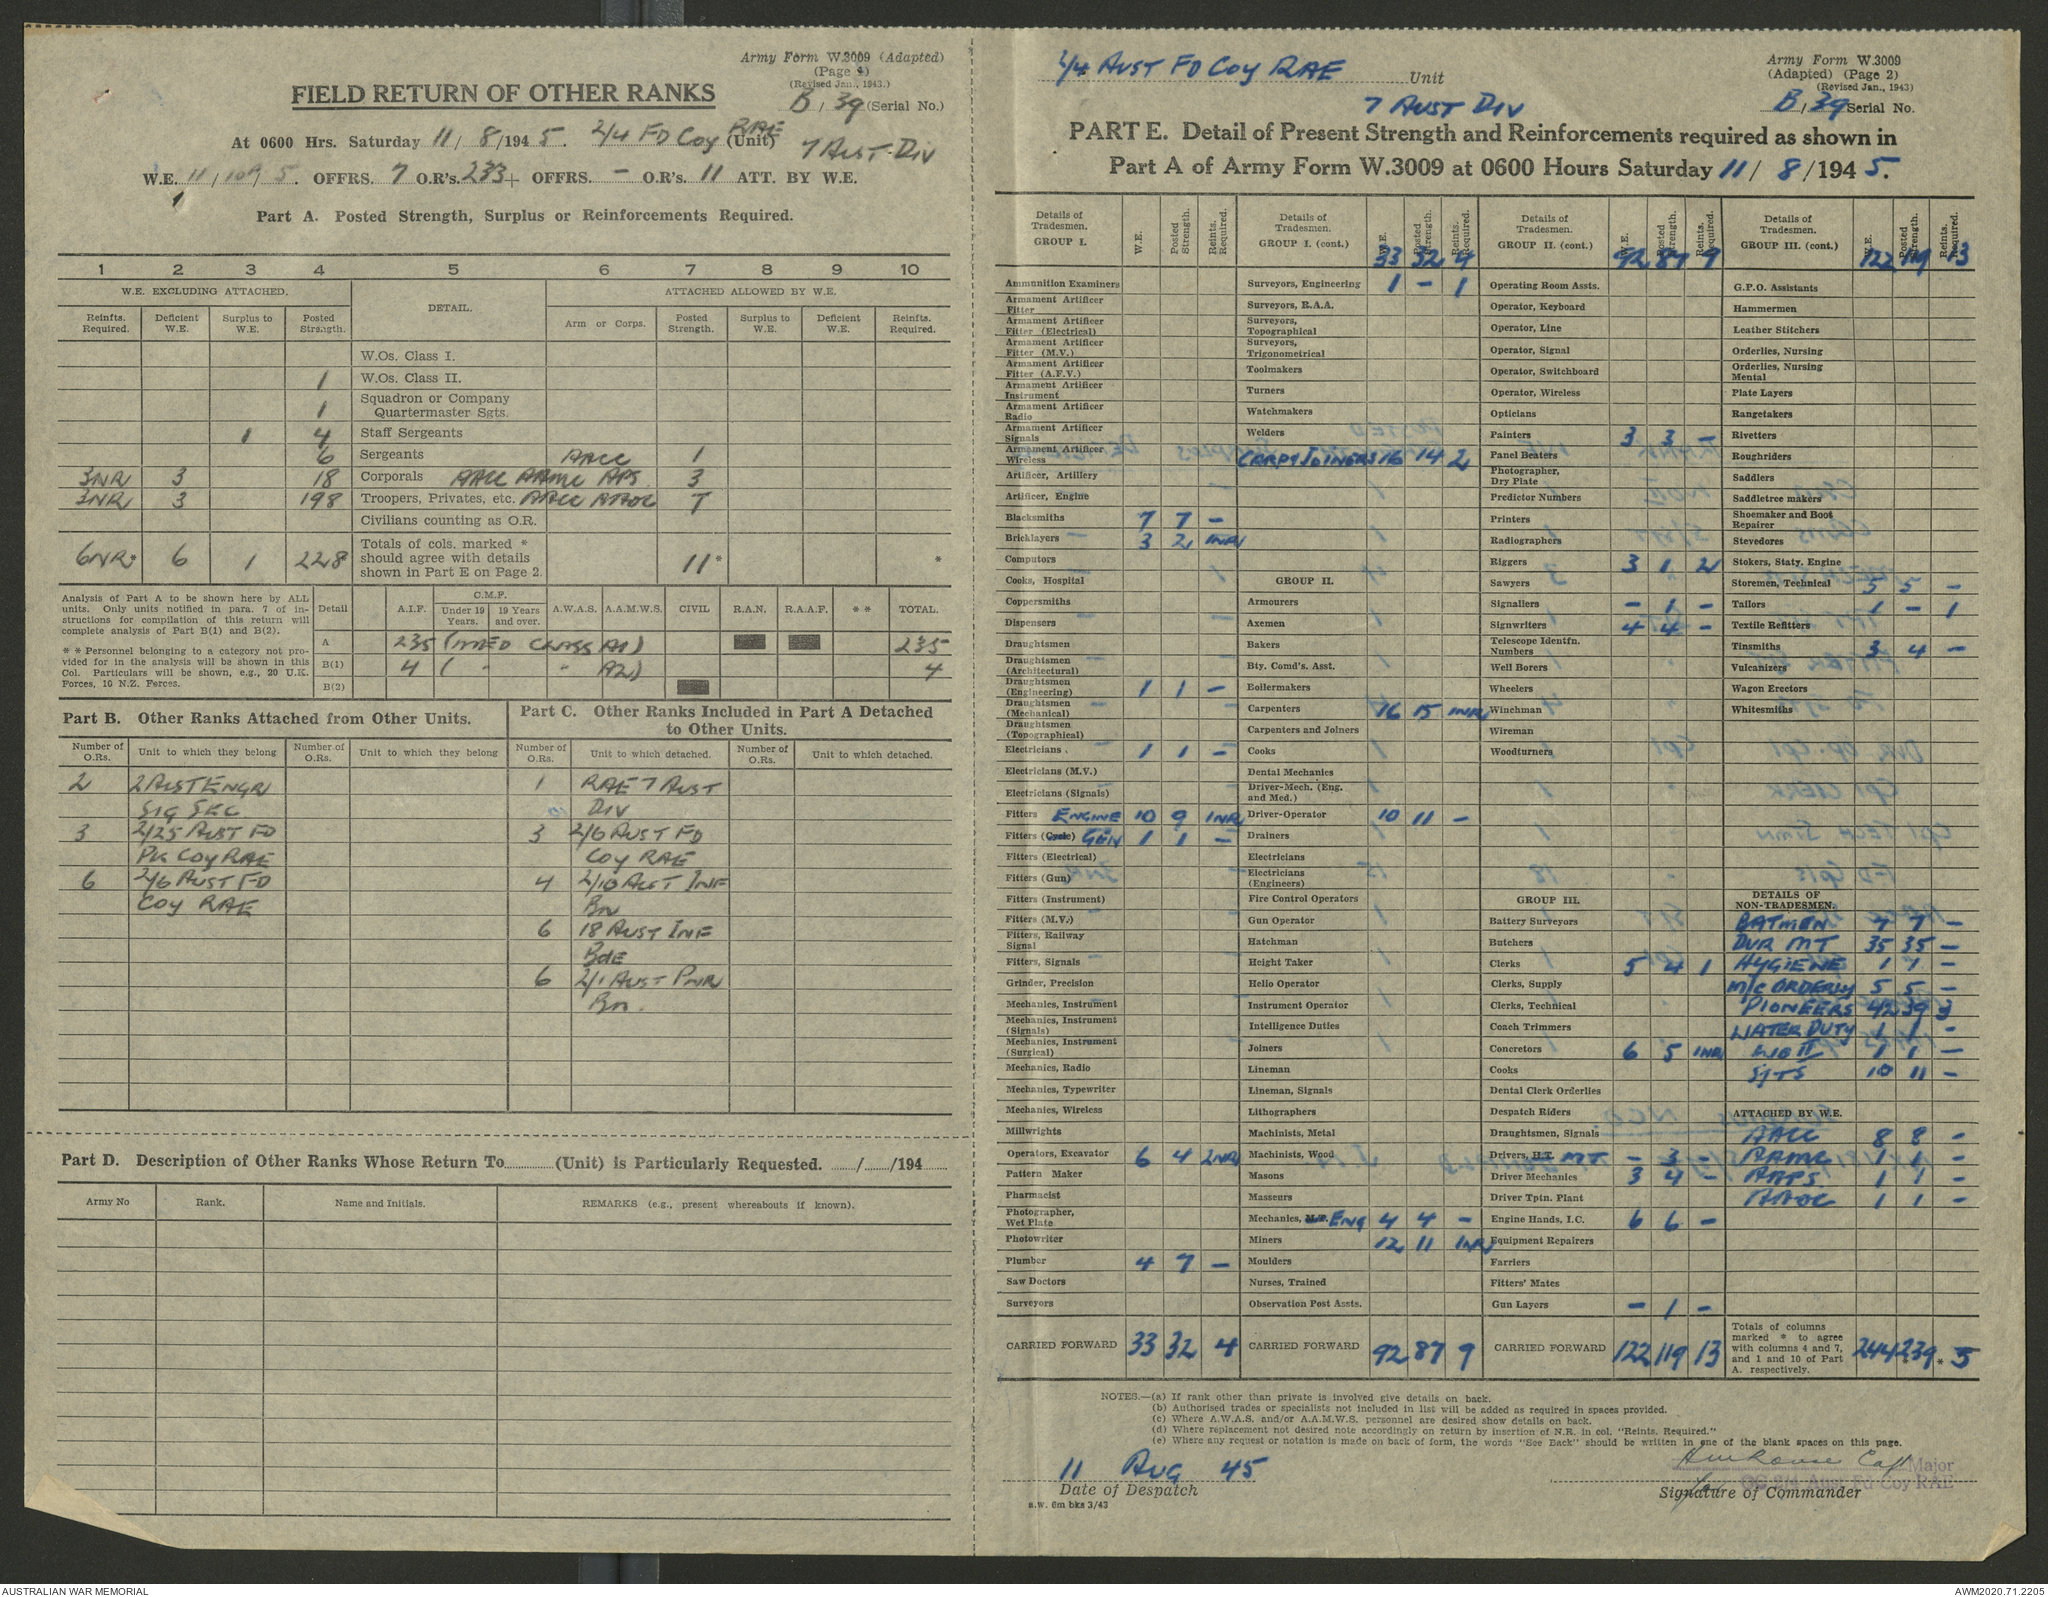 Army Form W.3009 (Adapted)
(Page 1)
(Revised Jan., 1943.)
FIELD RETURN OF OTHER RANKS
B/39 (Serial No.)
At 0600 Hrs. Saturday 11/8/1945. 2/4 FD Coy RAE (Unit) 7 Aust. Div
W.E. 11/109/5. OFFRS. 7 O.R's. 233 + OFFRS. — O.R's. 11 ATT. BY W.E.
1
Part A. Posted Strength, Surplus or Reinforcements Required.
1 2 3 4 5 6 7 8 9 10
W.E. EXCLUDING ATTACHED. DETAIL. ATTACHED ALLOWED BY W.E.
Reinfts. Required. Deficient W.E. Surplus to W.E. Posted Strength. Arm or Corps. Posted Strength. Surplus to W.E. Deficient W.E. Reinfts. Required.
W.Os. Class I.
1 W.Os. Class II.
1 Squadron or Company Quartermaster Sgts.
1 4 Staff Sergeants
6 Sergeants AACC 1
3NR 3 18 Corporals AACC AAMC APS 3
3NR 3 198 Troopers, Privates, etc. AACC AAOC 7
Civilians counting as O.R.
6NR* 6 1 228 Totals of cols. marked * should agree with details shown in Part E on Page 2. 11* *
Analysis of Part A to be shown here by ALL
units. Only units notified in para. 7 of in-
structions for compilation of this return will
complete analysis of Part B(1) and B(2).
* * Personnel belonging to a category not pro-
vided for in the analysis will be shown in this
Col. Particulars will be shown, e.g., 20 U.K.
Forces, 10 N.Z. Forces.
Detail A.I.F. C.M.F. Under 19 Years. 19 Years and over. A.W.A.S. A.A.M.W.S. CIVIL R.A.N. R.A.A.F. * * TOTAL.
A 235 (MED CLASS A1) 235
B(1) 4 ( " " A2) 4
B(2)
Part B. Other Ranks Attached from Other Units.
Number of O.Rs. Unit to which they belong Number of O.Rs. Unit to which they belong
2 2 AUST ENGR
SIG SEC
3 2/25 AUST FD
PK COY RAE
6 2/6 AUST FD
COY RAE
Part C. Other Ranks Included in Part A Detached
to Other Units.
Number of O.Rs. Unit to which detached. Number of O.Rs. Unit to which detached.
1 RAE 7 AUST
DIV
3 2/6 AUST FD
COY RAE
4 2/10 AUST INF
BN
6 18 AUST INF
BDE
6 2/1 AUST PNR
BN.
Part D. Description of Other Ranks Whose Return To........(Unit) is Particularly Requested. ....../....../194......
Army No Rank. Name and Initials. REMARKS (e.g., present whereabouts if known).
2/4 AUST FD COY RAE Unit
7 AUST DIV
Army Form W.3009
(Adapted) (Page 2)
(Revised Jan., 1943)
B/39 Serial No.
PART E. Detail of Present Strength and Reinforcements required as shown in
Part A of Army Form W.3009 at 0600 Hours Saturday 11/8/1945.
Details of Tradesmen. GROUP I. W.E. Posted Strength. Reints. Required.
Ammunition Examiners
Armament Artificer Fitter
Armament Artificer Fitter (Electrical)
Armament Artificer Fitter (M.V.)
Armament Artificer Fitter (A.F.V.)
Armament Artificer Instrument
Armament Artificer Radio
Armament Artificer Signals
Armament Artificer Wireless
Artificer, Artillery
Artificer, Engine
Blacksmiths 7 7 —
Bricklayers 3 2 1NR
Computors
Cooks, Hospital
Coppersmiths
Dispensers
Draughtsmen
Draughtsmen (Architectural)
Draughtsmen (Engineering) 1 1 —
Draughtsmen (Mechanical)
Draughtsmen (Topographical)
Electricians . 1 1 —
Electricians (M.V.)
Electricians (Signals)
Fitters ENGINE 10 9 1NR
Fitters (Cycle) GEN 1 1 —
Fitters (Electrical)
Fitters (Gun)
Fitters (Instrument)
Fitters (M.V.)
Fitters, Railway Signal
Fitters, Signals
Grinder, Precision
Mechanics, Instrument
Mechanics, Instrument (Signals)
Mechanics, Instrument (Surgical)
Mechanics, Radio
Mechanics, Typewriter
Mechanics, Wireless
Millwrights
Operators, Excavator 6 4 2NR
Pattern Maker
Pharmacist
Photographer, Wet Plate
Photowriter
Plumber 4 7 —
Saw Doctors
Surveyors
CARRIED FORWARD 33 32 4
Details of Tradesmen. GROUP I. (cont.) W.E. Posted Strength. Reints. Required.
33 32 4
Surveyors, Engineering 1 — 1
Surveyors, R.A.A.
Surveyors, Topographical
Surveyors, Trigonometrical
Toolmakers
Turners
Watchmakers
Welders
CARP & JOINERS 16 14 2
GROUP II.
Armourers
Axemen
Bakers
Bty. Comd's. Asst.
Boilermakers
Carpenters 16 15 1NR
Carpenters and Joiners
Cooks
Dental Mechanics
Driver-Mech. (Eng. and Med.)
Driver-Operator 10 11 —
Drainers
Electricians
Electricians (Engineers)
Fire Control Operators
Gun Operator
Hatchman
Height Taker
Hello Operator
Instrument Operator
Intelligence Duties
Joiners
Lineman
Lineman, Signals
Lithographers
Machinists, Metal
Machinists, Wood
Masons
Masseurs
Mechanics, M.V. ENG 4 4 —
Miners 12 11 1NR
Moulders
Nurses, Trained
Observation Post Assts.
CARRIED FORWARD 92 87 9
Details of Tradesmen. GROUP II. (cont.) W.E. Posted Strength. Reints. Required.
92 87 9
Operating Room Assts.
Operator, Keyboard
Operator, Line
Operator, Signal
Operator, Switchboard
Operator, Wireless
Opticians
Painters 3 3 —
Panel Beaters
Photographer, Dry Plate
Predictor Numbers
Printers
Radiographers
Riggers 3 1 2
Sawyers
Signallers — 1 —
Signwriters 4 4 —
Telescope Identfn. Numbers
Well Borers
Wheelers
Winchman
Wireman
Woodturners
GROUP III.
Battery Surveyors
Butchers
Clerks 5 4 1
Clerks, Supply
Clerks, Technical
Coach Trimmers
Concretors 6 5 1NR
Cooks
Dental Clerk Orderlies
Despatch Riders
Draughtsmen, Signals
Drivers, H.T. MT — 3 —
Driver Mechanics 3 4 —
Driver Tptn. Plant
Engine Hands, I.C. 6 6 —
Equipment Repairers
Farriers
Fitters' Mates
Gun Layers — 1 —
CARRIED FORWARD 122 119 13
Details of Tradesmen. GROUP III. (cont.) W.E. Posted Strength. Reints. Required.
122 119 13
G.P.O. Assistants
Hammermen
Leather Stitchers
Orderlies, Nursing
Orderlies, Nursing Mental
Plate Layers
Rangetakers
Rivetters
Roughriders
Saddlers
Saddletree makers
Shoemaker and Boot Repairer
Stevedores
Stokers, Staty. Engine
Storemen, Technical 5 5 —
Tailors 1 — 1
Textile Refitters
Tinsmiths 3 4 —
Vulcanizers
Wagon Erectors
Whitesmiths
DETAILS OF NON-TRADESMEN.
BATMEN 7 7 —
DVR MT 35 35 —
HYGIENE 1 1 —
M/C ORDERLY 5 5 —
PIONEERS 42 39 3
WATER DUTY 1 1 —
WO II 1 1 —
SJTS 10 11 —
ATTACHED BY W.E.
AACC 8 8 —
AAMC 1 1 —
AAPS 1 1 —
AAOC 1 1 —
Totals of columns marked * to agree with columns 4 and 7, and 1 and 10 of Part A. respectively. 244 239* * 5
NOTES.—(a) If rank other than private is involved give details on back.
(b) Authorised trades or specialists not included in list will be added as required in spaces provided.
(c) Where A.W.A.S. and/or A.A.M.W.S. personnel are desired show details on back.
(d) Where replacement not desired note accordingly on return by insertion of N.R. in col. "Reints. Required."
(e) Where any request or notation is made on back of form, the words "See Back" should be written in one of the blank spaces on this page.
11 AUG 45
Date of Despatch
a.w. 6m bks 3/43
Capt Major
OC 2/4 Aust Fd Coy RAE
Signature of Commander
AUSTRALIAN WAR MEMORIAL
AWM2020.71.2205